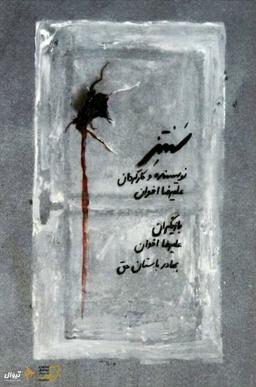 سَنتز
نویسنده و کارگردان
علیرضا اخوان
بازیگران
علیرضا اخوان
بهادر باستان حق
تیوال